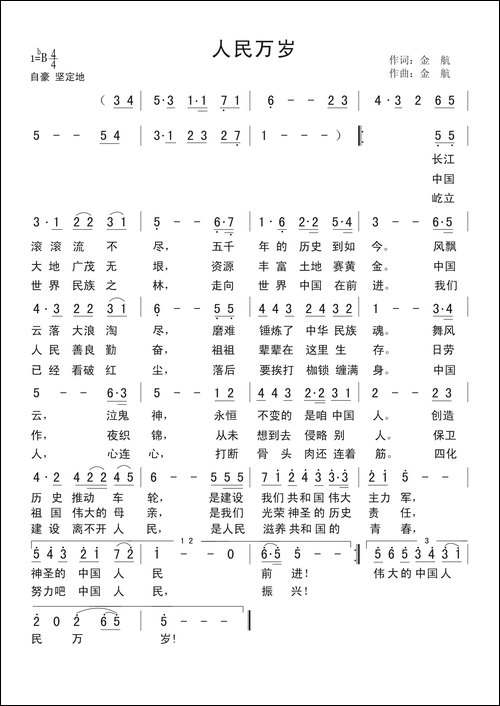 人民万岁
1=♭B 4/4
作词：金 航
自豪 坚定地
作曲：金 航
（3 4 | 5·3 1·1 7 1 | 6 - - 2 3 | 4·3 2 6 5 |
5 - - 5 4 | 3·1 2 3 2 7 | 1 - - - ） |: 5 5
长江
中国
屹立
3·1 2 2 3 1 | 5 - - 6·7 | 1·6 2·2 5·4 | 3 - - 6·5 |
滚滚 流 不 尽， 五千 年的 历史 到如 今。 风飘
大地 广茂 无 垠， 资源 丰富 土地 赛黄 金。 中国
世界 民族 之 林， 走向 世界 中国 在前 进。 我们
4·3 2 2 3 1 | 6 - - 5 5 | 4 4 3 2 4 3 2 | 1 - - 3·4 |
云落 大浪 淘 尽， 磨难 锤炼了 中华 民族 魂。 舞风
人民 善良 勤 奋， 祖祖 辈辈在 这里 生 存。 日劳
已经 看破 红 尘， 落后 要挨打 枷锁 缠满 身。 中国
5 - - 6·3 | 5 - - 1 2 | 4 4 3 2 1 2 3 | 2 - - 2 3 |
云， 泣鬼 神， 永恒 不变的 是咱 中国 人。 创造
作， 夜织 锦， 从未 想到去 侵略 别 人。 保卫
人， 心连 心， 打断 骨 头 肉还 连着 筋。 四化
4·2 4 2 2 4 5 | 6 - - 5 5 5 | 7 1 2 4 3 3·3 | 2 1 5 - - |
历史 推动 车 轮， 是建设 我们 共和国 伟大 主力 军，
祖国 伟大的 母 亲， 是我们 光荣 神圣的 历史 责 任，
建设 离不开 人 民， 是人民 滋养 共和国的 青 春，
1 2
3
5 4 3 2 1 7 2 | 1 - - 0 | 6·5 5 - - :| 5 6 5 3 5 3 4 3 1 |
神圣的 中国 人 民 前 进！ 伟大的中国人
努力吧 中国 人 民， 振 兴！
2 0 2 6 5 | 5 - - - | 5 - - 0 ‖
民 万 岁！